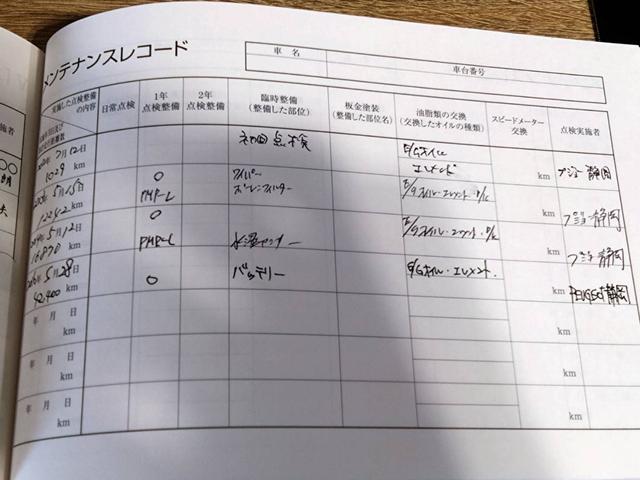 メンテナンスレコード
車 名
車台番号
実施した点検整備の内容
日常点検
1年点検整備
2年点検整備
臨時整備(整備した部位)
板金塗装(整備した部位名)
油脂類の交換(交換したオイルの種類)
スピードメーター交換
点検実施者
7月12日
初回点検
E/Gオイル
エレメント
km
プジョー静岡
1029 km
5月15日
○
ワイパー
E/Gオイル・エレメント
km
プジョー静岡
km
5月12日
○
E/Gオイル・エレメント
km
プジョー静岡
km
5月28日
○
バッテリー
E/Gオイル・エレメント.
km
PEUGEOT静岡
40,400 km
年 月 日
km
km
年 月 日
km
km
年 月 日
km
km